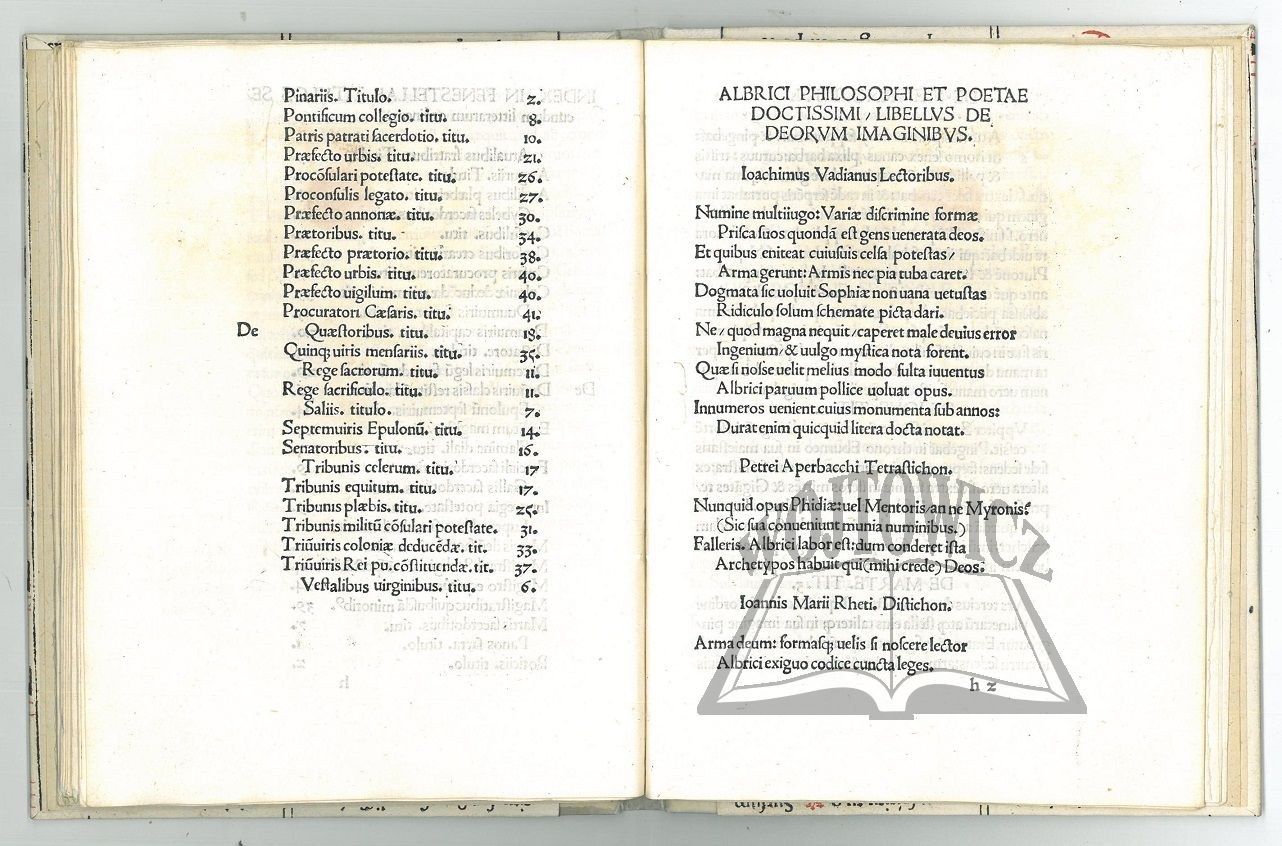 Pinariis. Titulo. 2.
Pontificum collegio. titu. 8.
Patris patrati sacerdotio. titu. 10.
Præfecto urbis. titu. 21.
Procōsulari potestate. titu. 26.
Proconsulis legato. titu. 27.
Præfecto annonæ. titu. 30.
Prætoribus. titu. 34.
Præfecto prætorio. titu. 38.
Præfecto urbis. titu. 40.
Præfecto uigilum. titu. 40.
Procuratori Cæsaris. titu. 41.
De Quæstoribus. titu. 18.
Quinqꝫ uiris mensariis. titu. 35.
Rege sacrorum. titu. 11.
Rege sacrificulo. titu. 11.
Saliis. titulo. 7.
Septemuiris Epulonū. titu. 14.
Senatoribus. titu. 16.
Tribunis celerum. titu. 17
Tribunis equitum. titu. 17.
Tribunis plæbis. titu. 25.
Tribunis militū cōsulari potestate. 31.
Triūuiris coloniæ deducēdæ. tit. 33.
Triūuiris Rei pu. cōstituendæ. tit. 37.
Vestalibus uirginibus. titu. 6.
ALBRICI PHILOSOPHI ET POETAE
DOCTISSIMI / LIBELLVS DE
DEORVM IMAGINIBVS.
Ioachimus Vadianus Lectoribus.
Numine multiiugo: Variæ discrimine formæ
Prisca suos quondā est gens uenerata deos.
Et quibus eniteat cuiusuis celsa potestas /
Arma gerunt: Armis nec pia tuba caret.
Dogmata sic uoluit Sophiæ non uana uetustas
Ridiculo solum schemate picta dari.
Ne / quod magna nequit / caperet male deuius error
Ingenium / & uulgo mystica nota forent.
Quæ si nosse uelit melius modo fulta iuuentus
Albrici paruum pollice uoluat opus.
Innumeros uenient cuius monumenta sub annos:
Durat enim quicquid litera docta notat.
Petrei Aperbacchi Tetrastichon.
Nunquid opus Phidiæ: uel Mentoris / an ne Myronis?
(Sic sua conueniunt munia numinibus.)
Falleris. Albrici labor est: dum conderet ista
Archetypos habuit qui (mihi crede) Deos.
Ioannis Marii Rheti. Distichon.
Arma deum: formasqꝫ uelis si noscere lector
Albrici exiguo codice cuncta leges.
h 2
WOJTOWICZ